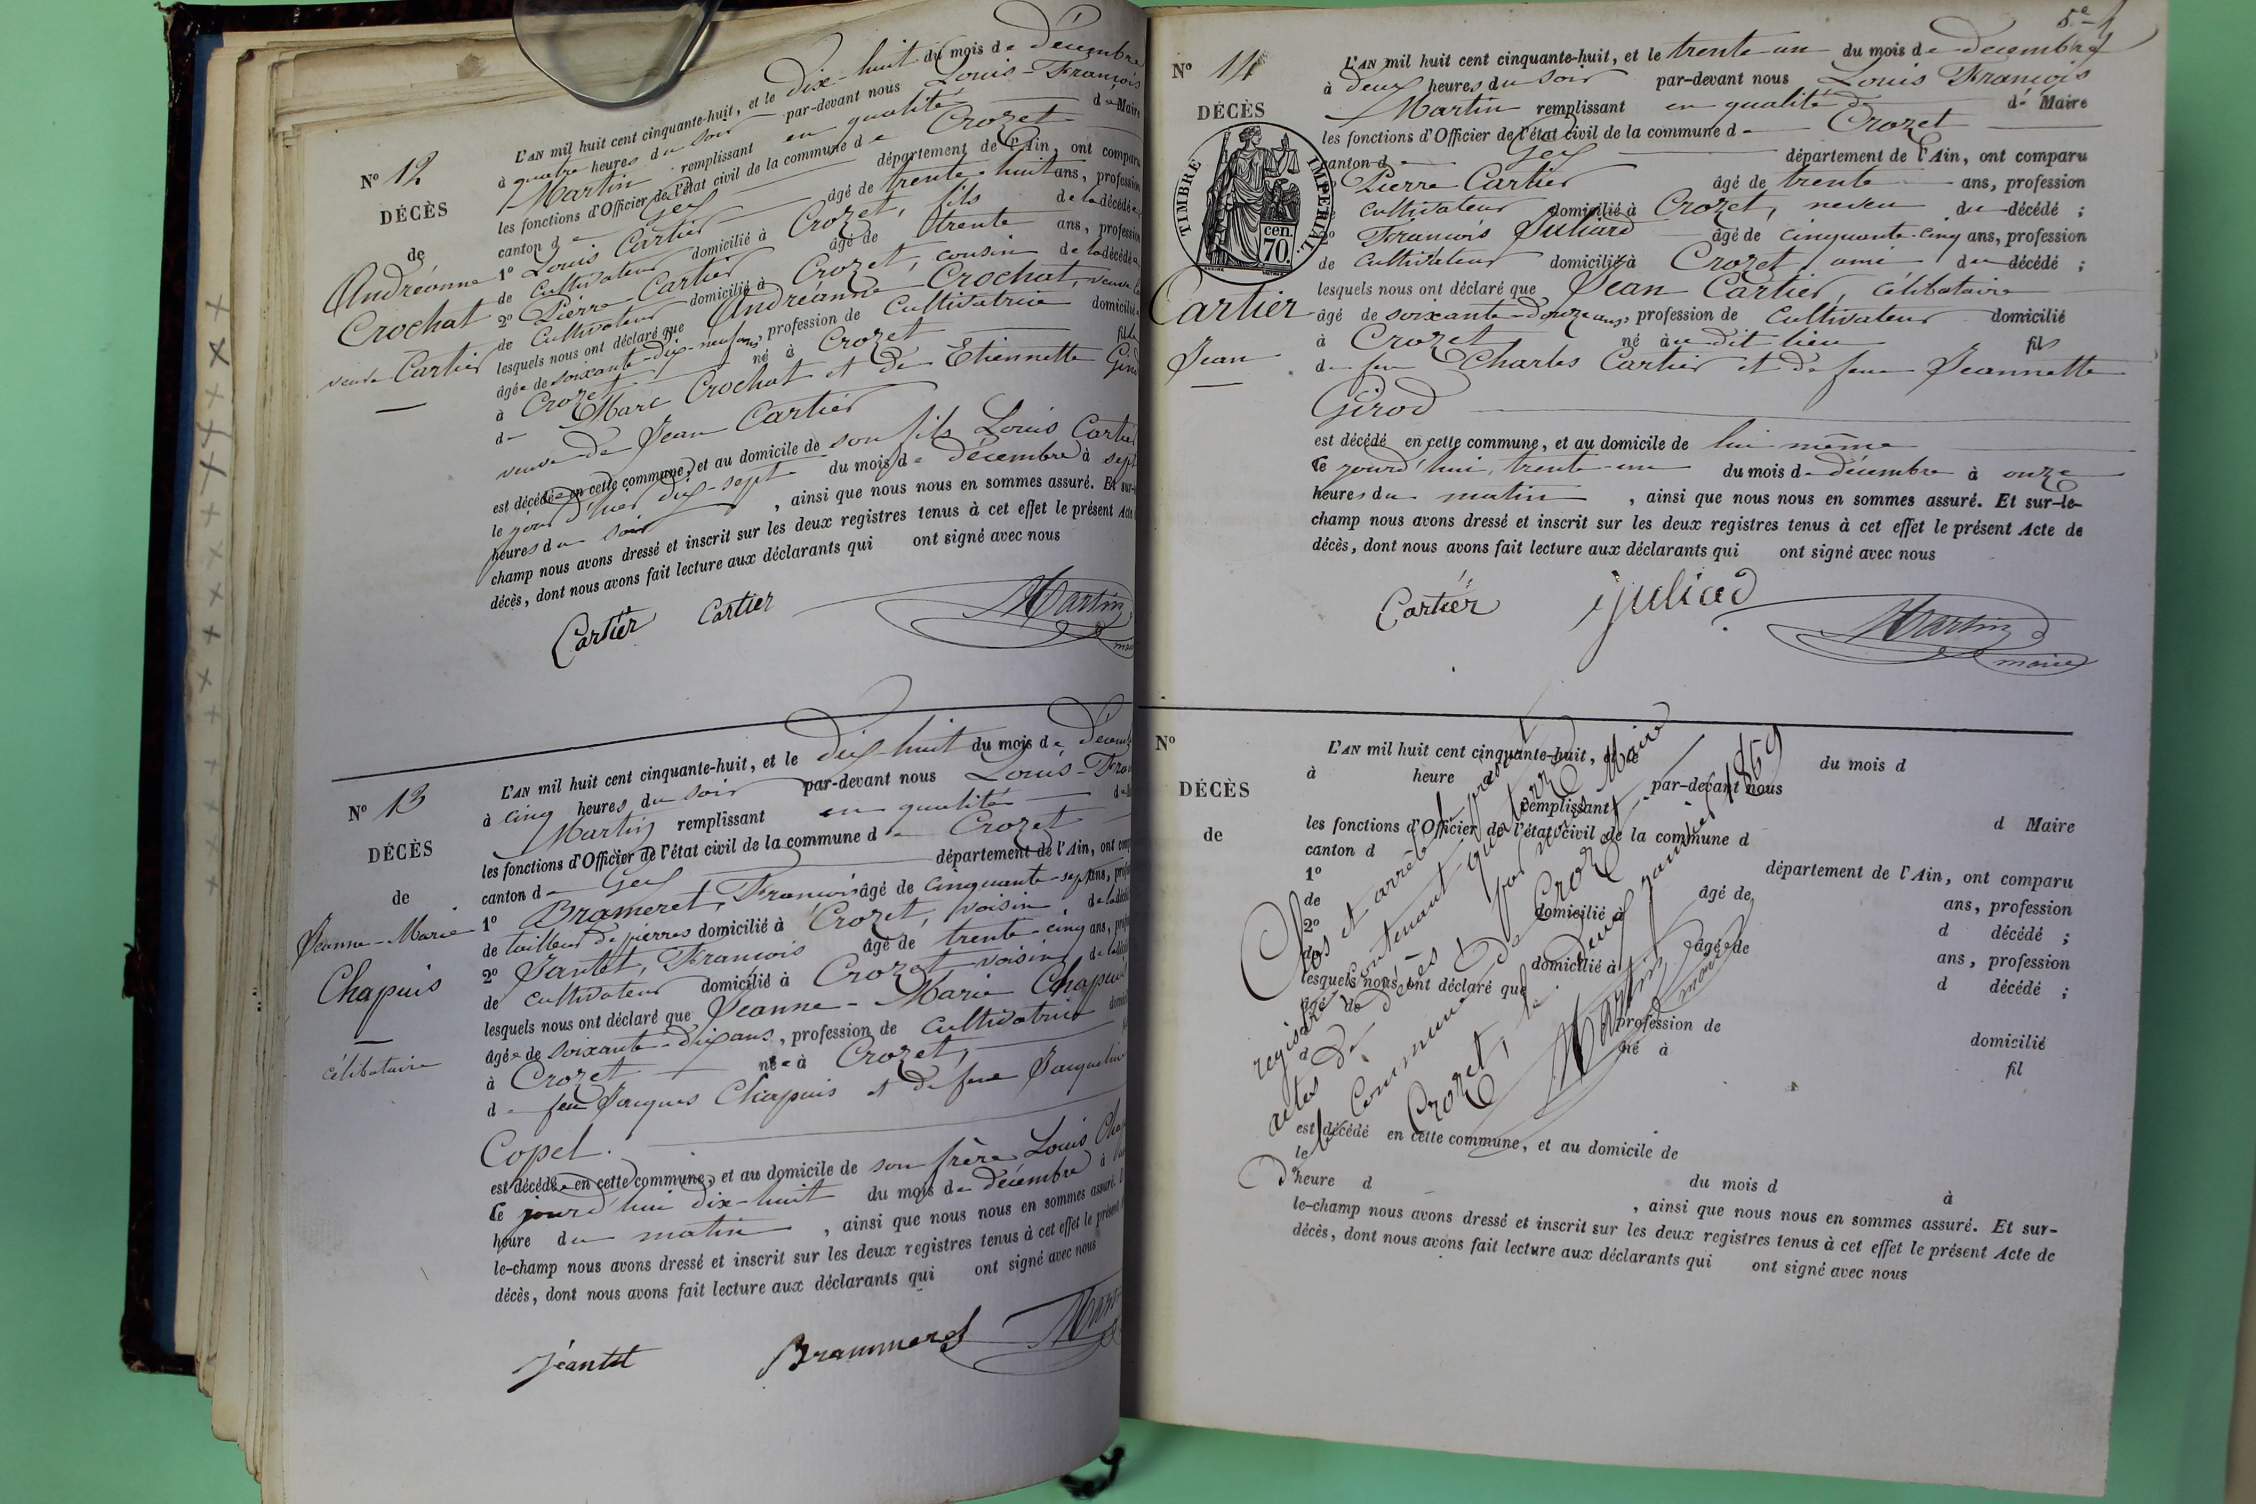 Nº 12
DÉCÈS
de
Andréanne
Crochat
veuve Cartier
L'AN mil huit cent cinquante-huit, et le dix-huit du mois de décembre
à quatre heures du soir par-devant nous Louis-François
Martin remplissant en qualité de Maire
les fonctions d'Officier de l'état civil de la commune de Crozet
canton de Gex département de l'Ain, ont comparu
1º Louis Cartier âgé de trente-huit ans, profession
de Cultivateur domicilié à Crozet, fils de la décédée
2º Pierre Cartier âgé de trente ans, profession
de Cultivateur domicilié à Crozet, cousin de la décédée
lesquels nous ont déclaré que Andréanne Crochat, veuve
âgée de soixante-dix-neuf ans, profession de Cultivatrice domicilié
à Crozet né à Crozet fille
de Marc Crochat et de Etiennette
veuve de Jean Cartier
est décédée en cette commune, et au domicile de son fils Louis Cartier
le jour d'hier dix-sept du mois de décembre à sept
heures du soir , ainsi que nous nous en sommes assuré. Et sur-le-
champ nous avons dressé et inscrit sur les deux registres tenus à cet effet le présent Acte
décès, dont nous avons fait lecture aux déclarants qui ont signé avec nous
Cartier Cartier Martin
Nº 13
DÉCÈS
de
Jeanne-Marie
Chapuis
célibataire
L'AN mil huit cent cinquante-huit, et le dix-huit du mois de Décemb
à cinq heures du soir par-devant nous Louis-Fran
Martin remplissant en qualité de
les fonctions d'Officier de l'état civil de la commune de Crozet
canton de Gex département de l'Ain, ont comp
1º Brameret, François âgé de cinquante-sept ans, prof
de tailleur de pierres domicilié à Crozet, voisin de la décé
2º Jantet, François âgé de trente-cinq ans, prof
de cultivateur domicilié à Crozet voisin de la décé
lesquels nous ont déclaré que Jeanne-Marie Chapuis
âgée de soixante-dix ans, profession de Cultivatrice domici
à Crozet née à Crozet,
de feu Jacques Chapuis et de feue Jacqueline
Copel.
est décédée en cette commune, et au domicile de son frère Louis Cha
Ce jourd'hui dix-huit du mois de décembre à
heure du matin , ainsi que nous nous en sommes assuré.
le-champ nous avons dressé et inscrit sur les deux registres tenus à cet effet le présent
décès, dont nous avons fait lecture aux déclarants qui ont signé avec nous
Jeantet Brammeret Martin
5e
Nº 14
DÉCÈS
TIMBRE IMPÉRIAL.
70 cen.
Cartier
Jean
L'AN mil huit cent cinquante-huit, et le trente-un du mois de decembre
à deux heures du soir par-devant nous Louis François
Martin remplissant en qualité de de Maire
les fonctions d'Officier de l'état civil de la commune de Crozet
canton de Gex département de l'Ain, ont comparu
Pierre Cartier âgé de trente ans, profession
cultivateur domicilié à Crozet, neveu du décédé ;
2º François Juliard âgé de cinquante-cinq ans, profession
de cultivateur domicilié à Crozet, ami du décédé ;
lesquels nous ont déclaré que Jean Cartier, célibataire
âgé de soixante-douze ans, profession de Cultivateur domicilié
à Crozet né au dit lieu fils
de feu Charles Cartier et de feue Jeannette
Girod
est décédé en cette commune, et au domicile de lui-même
Ce jourd'hui, trente-un du mois de décembre à onze
heures du matin , ainsi que nous nous en sommes assuré. Et sur-le-
champ nous avons dressé et inscrit sur les deux registres tenus à cet effet le présent Acte de
décès, dont nous avons fait lecture aux déclarants qui ont signé avec nous
Cartier juliard Martin
maire
Nº
DÉCÈS
de
L'AN mil huit cent cinquante-huit, et le du mois d
à heure par-devant nous
remplissant d Maire
les fonctions d'Officier de l'état civil de la commune d
canton d département de l'Ain, ont comparu
1º âgé de ans, profession
de domicilié à d décédé ;
2º âgé de ans, profession
de domicilié à d décédé ;
lesquels nous ont déclaré que
âgé de profession de domicilié
à né à fil
d
est décédé en cette commune, et au domicile de
le du mois d à
heure d , ainsi que nous nous en sommes assuré. Et sur-
le-champ nous avons dressé et inscrit sur les deux registres tenus à cet effet le présent Acte de
décès, dont nous avons fait lecture aux déclarants qui ont signé avec nous
Clos et arrêté le présent
registre contenant quatorze
actes de décès, par nous Maire
de la Commune de Crozet
Crozet, le deux janvier 1859
Martin
maire